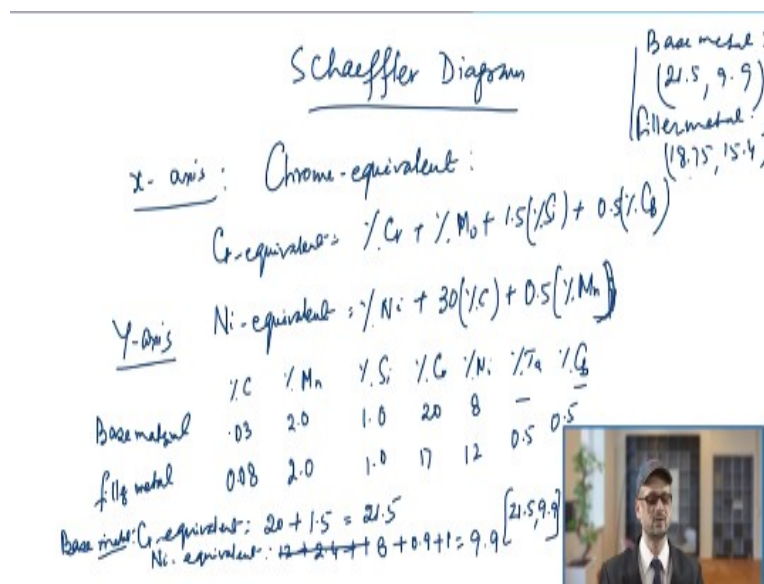 Schaeffler Diagram
Base metal:
(21.5, 9.9)
Filler metal:
(18.75, 15.4)
x-axis: Chrome-equivalent:
Cr-equivalent = %Cr + %Mo + 1.5(%Si) + 0.5(%Cb)
Y-axis Ni-equivalent = %Ni + 30(%C) + 0.5(%Mn)
%C %Mn %Si %Cr %Ni %Ta %Cb
Base material .03 2.0 1.0 20 8 – –
filler metal 0.08 2.0 1.0 17 12 0.5 0.5
Base metal: Cr-equivalent: 20 + 1.5 = 21.5
Ni-equivalent: 12 + 2.4 + 1 8 + 0.9 + 1 = 9.9 [21.5, 9.9]